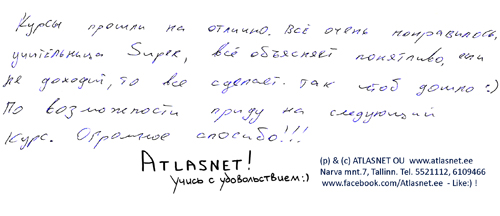 Курсы прошли на отлично. Всё очень понравилось,
учительница Super, всё объясняет понятливо, если
не доходит, то все сделает так чтоб дошло :)
По возможности приду на следующий
курс. Огромное спасибо!!!
ATLASNET!
Учись с удовольствием:)
(p) & (c) ATLASNET OU www.atlasnet.ee
Narva mnt.7, Tallinn. Tel. 5521112, 6109466
www.facebook.com/Atlasnet.ee - Like:) !